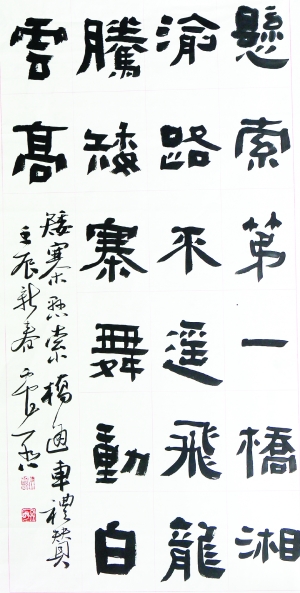 懸索第一橋湘
渝路平遥飛龍
騰矮寨舞動白
雲高
矮寨悬索橋通車禮贊
壬辰新春